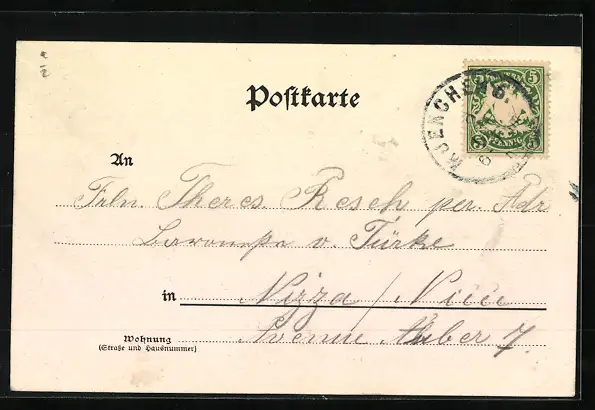 Postkarte
5
MUENCHEN 6.
PFENNIG
An
Frln. Theres Resch per. Adr
Baronesse v. Türke
in Nizza / Nice
Wohnung
(Straße und Hausnummer)
Avenue Auber 7.